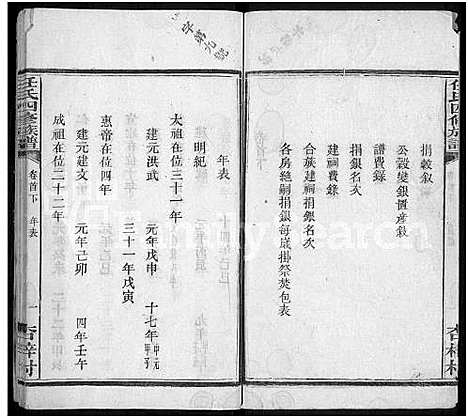 任氏四修族譜
捐穀敘
公穀變銀置產敘
譜費錄
建祠費錄
合族建祠捐銀名次
捐銀名次
各房絕嗣捐銀每歲掛祭焚包表
杏梓村
字第九號
年表
明紀
太祖在位三十一年
建元洪武 元年戊申 十七年甲子
三十一年戊寅
惠帝在位四年
建元建文 元年己卯 四年壬午
成祖在位二十二年
任氏四修族譜
卷首下 年表 一
杏梓村